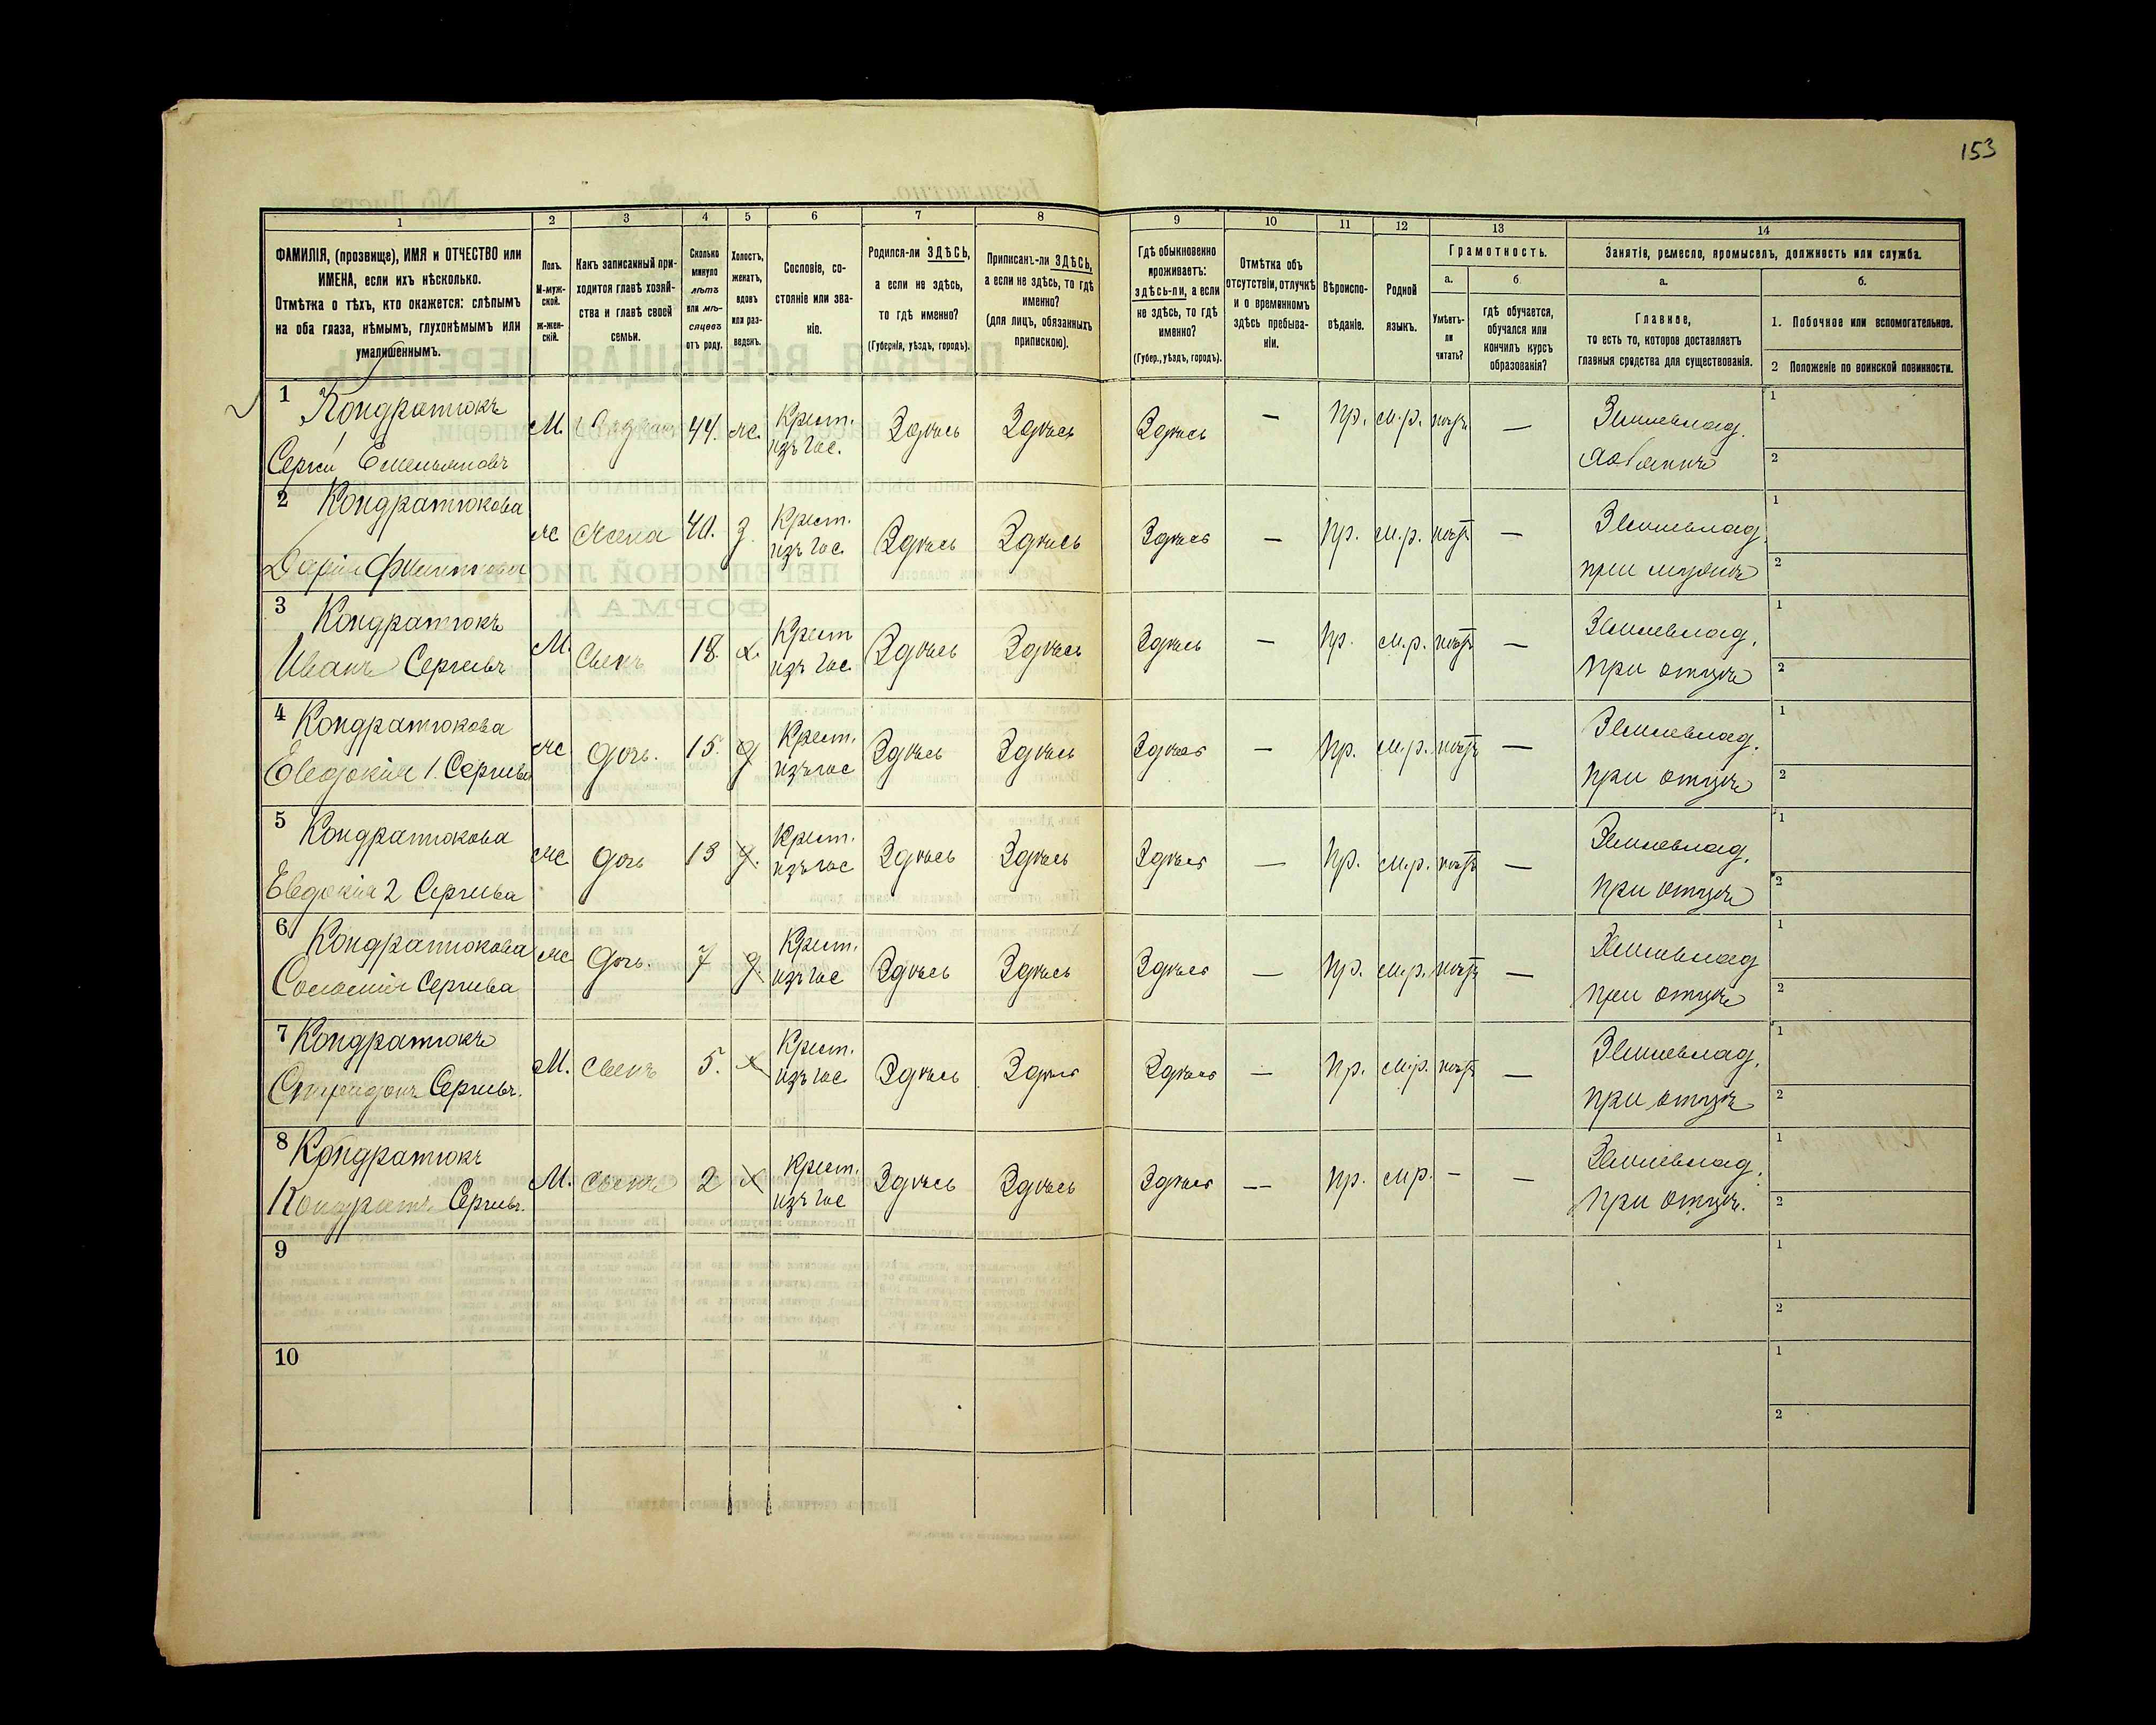 153
1
2
3
4
5
6
7
8
9
10
11
12
13
14
ФАМИЛІЯ, (прозвище), ИМЯ и ОТЧЕСТВО или
ИМЕНА, если ихъ нѣсколько.
Отмѣтка о тѣхъ, кто окажется: слѣпымъ
на оба глаза, нѣмымъ, глухонѣмымъ или
умалишеннымъ.
Полъ.
М-муж-
ской.
Ж-жен-
скій.
Какъ записанный при-
ходится главѣ хозяй-
ства и главѣ своей
семьи.
Сколько
минуло
лѣтъ
или мѣ-
сяцевъ
отъ роду.
Холостъ,
женатъ,
вдовъ
или раз-
веденъ.
Сословіе, со-
стояніе или зва-
ніе.
Родился-ли ЗДѢСЬ,
а если не здѣсь,
то гдѣ именно?
(Губернія, уѣздъ, городъ).
Приписанъ-ли ЗДѢСЬ,
а если не здѣсь, то гдѣ
именно?
(для лицъ, обязанныхъ
припискою).
Гдѣ обыкновенно
проживаетъ:
здѣсь-ли, а если
не здѣсь, то гдѣ
именно?
(Губер., уѣздъ, городъ).
Отмѣтка объ
отсутствіи, отлучкѣ
и о временномъ
здѣсь пребыва-
ніи.
Вѣроиспо-
вѣданіе.
Родной
языкъ.
Грамотность.
а.
б.
Умѣетъ-
ли
читать?
гдѣ обучается,
обучался или
кончилъ курсъ
образованія?
Занятіе, ремесло, промыселъ, должность или служба.
а.
б.
Главное,
то есть то, которое доставляетъ
главныя средства для существованія.
1. Побочное или вспомогательное.
2 Положеніе по воинской повинности.
1 Кондратюкъ
Сергій Емельяновъ
М. 44. ж. Крест. изъ гос. Здѣсь Здѣсь Здѣсь — пр. м.р. нѣтъ — Землевлад. хозяинъ
1
2
2 Кондратюкова
Дарія
ж жена 40. з. Крест. изъ гос. Здѣсь Здѣсь Здѣсь — пр. м.р. нѣтъ — Землевлад. при мужѣ
1
2
3 Кондратюкъ
Иванъ Сергѣевъ
М. Сынъ 18. х. Крест изъ гос. Здѣсь Здѣсь Здѣсь — пр. м.р. нѣтъ — Землевлад. при отцѣ
1
2
4 Кондратюкова
Евдокія 1. Сергѣева
ж дочь. 15. д Крест. изъ гос Здѣсь Здѣсь Здѣсь — пр. м.р. нѣтъ — Землевлад. при отцѣ
1
2
5 Кондратюкова
Евдокія 2 Сергѣева
ж. дочь 13 д. Крест. изъ гос Здѣсь Здѣсь Здѣсь — пр. м.р. нѣтъ — Землевлад. при отцѣ
1
2
6 Кондратюкова
Соломія Сергѣева
ж дочь. 7 д. Крест. изъ гос Здѣсь Здѣсь Здѣсь — пр. м.р. нѣтъ — Землевлад при отцѣ
1
2
7 Кондратюкъ
Спиридонъ Сергѣевъ.
М. сынъ 5. х Крест. изъ гос. Здѣсь Здѣсь Здѣсь — пр. м.р. нѣтъ — Землевлад. при отцѣ
1
2
8 Кондратюкъ
Кондратъ Сергѣевъ.
М. сынъ 2 х Крест. изъ гос Здѣсь Здѣсь Здѣсь — пр. мр. — — Землевлад. при отцѣ.
1
2
9
1
2
10
1
2